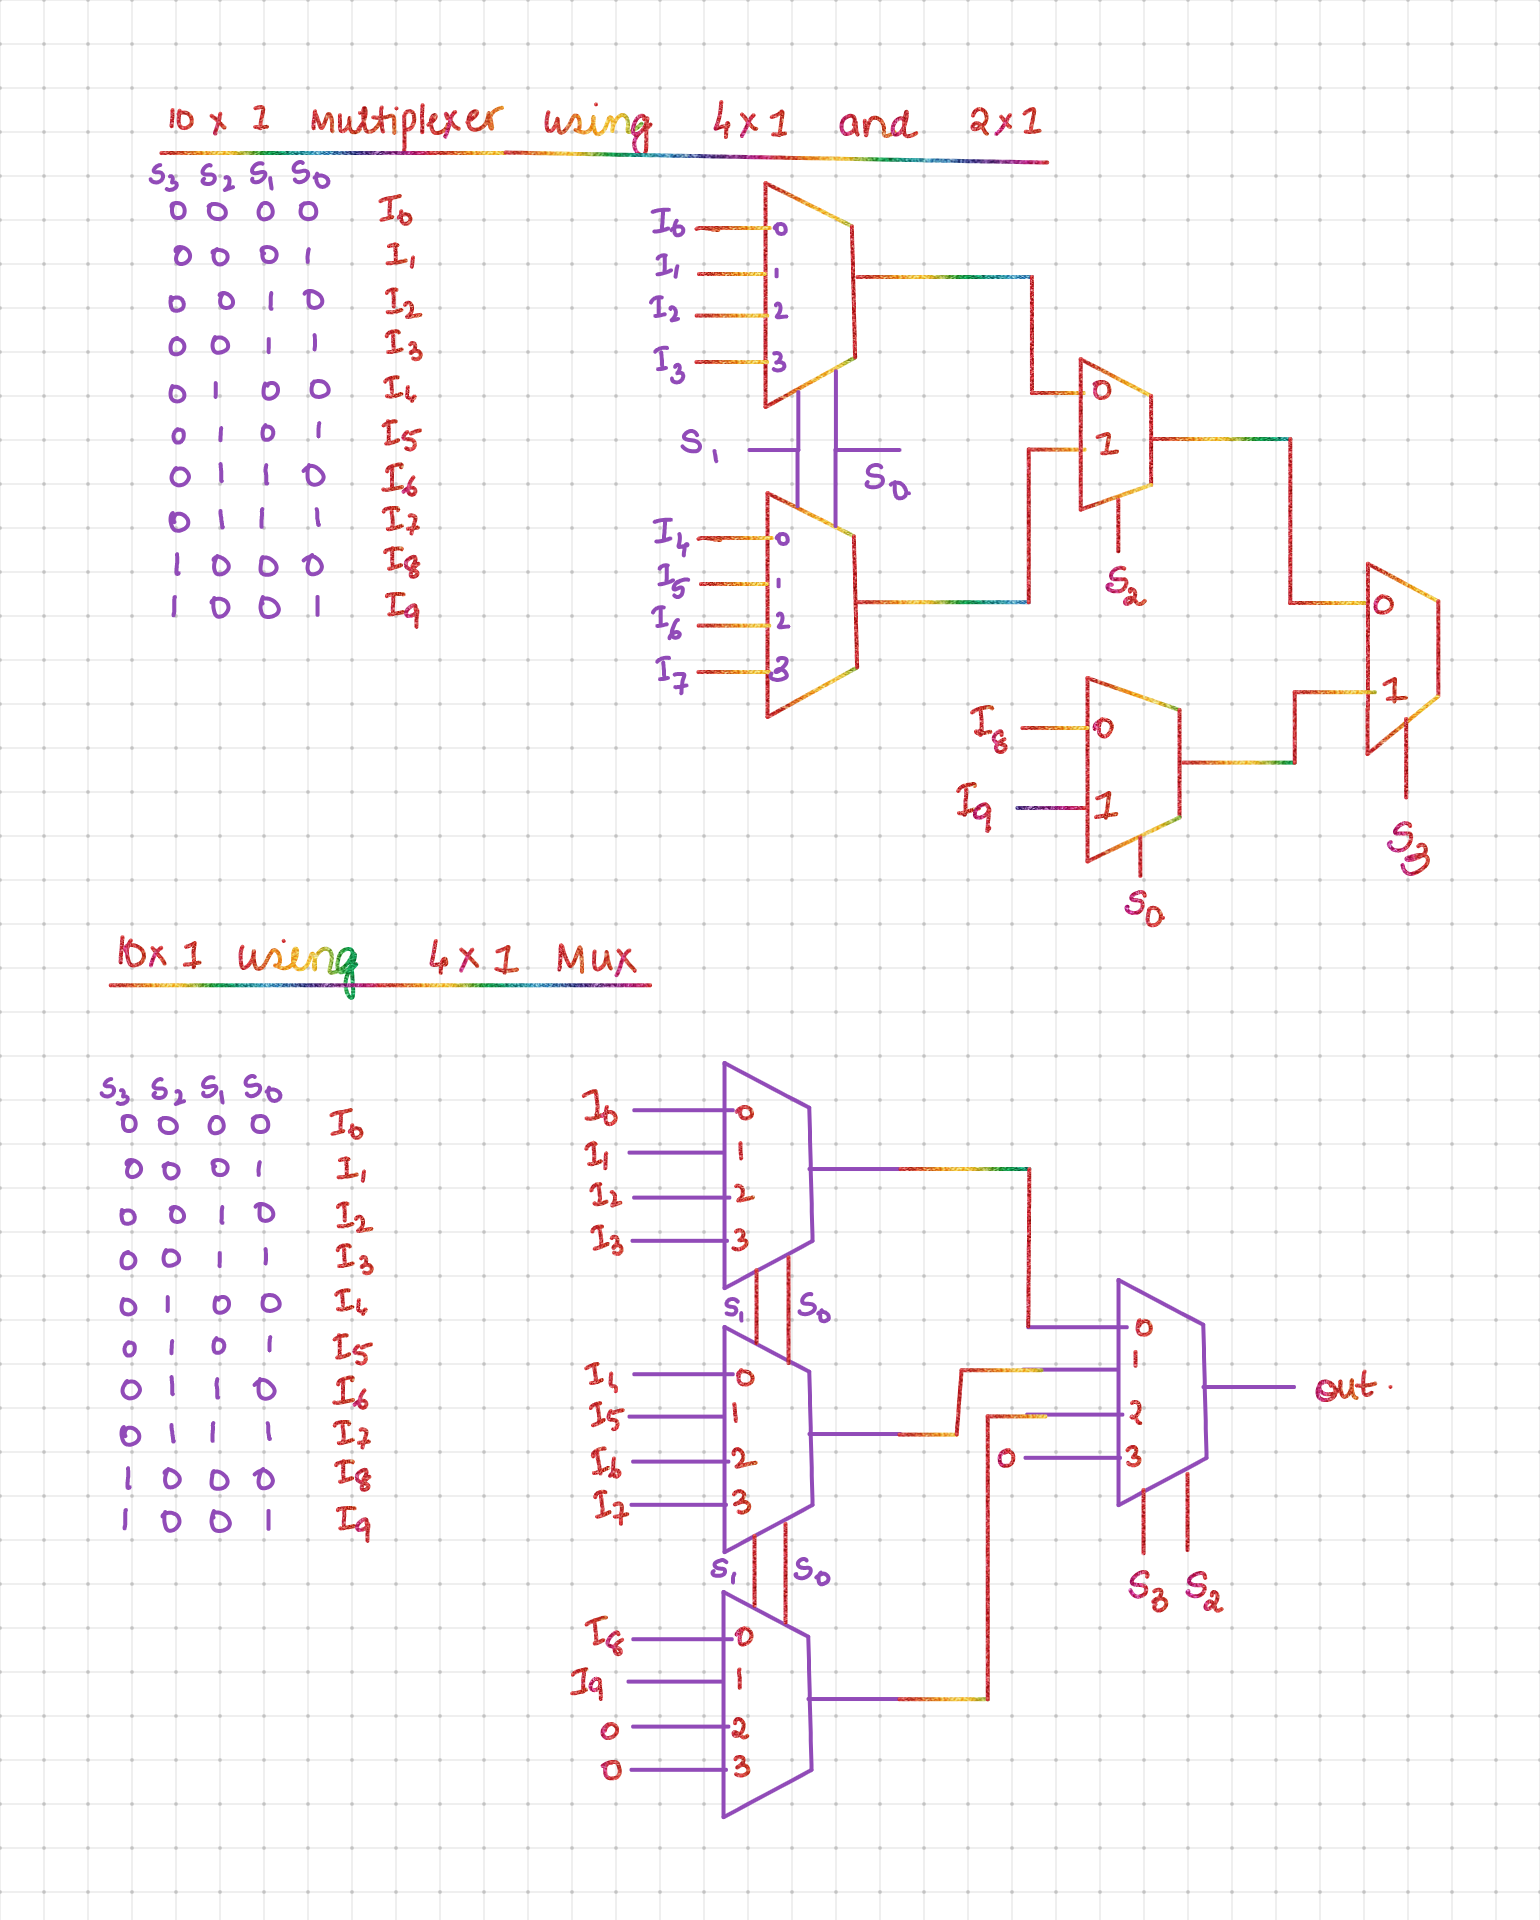 10 x 1 Multiplexer using 4x1 and 2x1
S3 S2 S1 S0
0 0 0 0 I0
0 0 0 1 I1
0 0 1 0 I2
0 0 1 1 I3
0 1 0 0 I4
0 1 0 1 I5
0 1 1 0 I6
0 1 1 1 I7
1 0 0 0 I8
1 0 0 1 I9
I0 0
I1 1
I2 2
I3 3
S1 S0
I4 0
I5 1
I6 2
I7 3
0
1
S2
I8 0
I9 1
S0
0
1
S3
10x1 using 4x1 Mux
S3 S2 S1 S0
0 0 0 0 I0
0 0 0 1 I1
0 0 1 0 I2
0 0 1 1 I3
0 1 0 0 I4
0 1 0 1 I5
0 1 1 0 I6
0 1 1 1 I7
1 0 0 0 I8
1 0 0 1 I9
I0 0
I1 1
I2 2
I3 3
S1 S0
I4 0
I5 1
I6 2
I7 3
S1 S0
I8 0
I9 1
0 2
0 3
0
1
2
0 3
S3 S2
out.